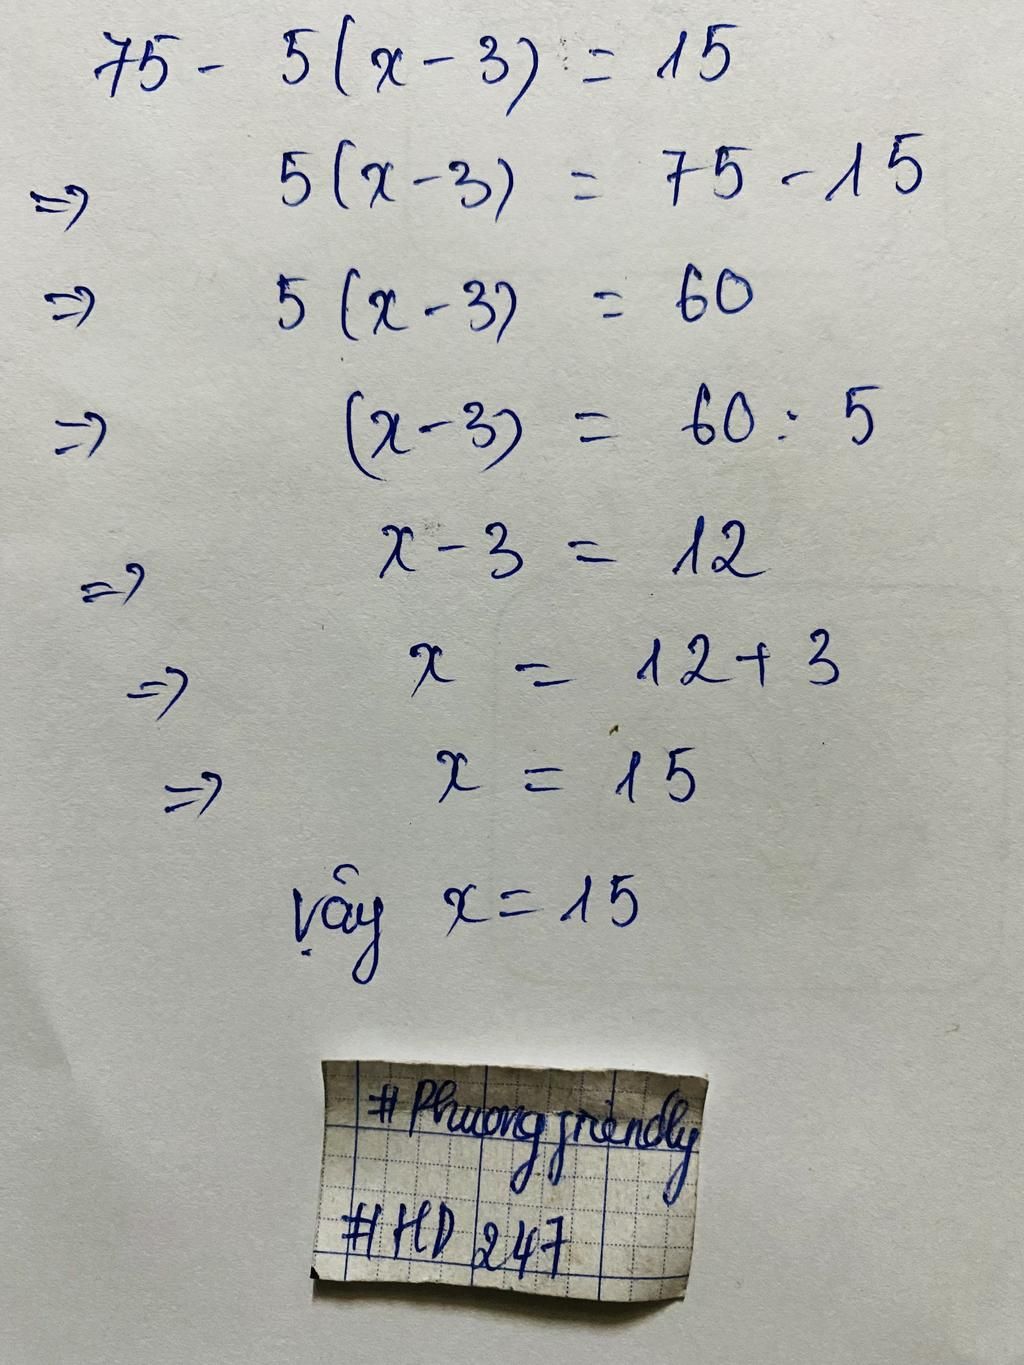 75 - 5(x - 3) = 15
=> 5(x - 3) = 75 - 15
=> 5(x - 3) = 60
=> (x - 3) = 60 : 5
=> x - 3 = 12
=> x = 12 + 3
=> x = 15
Vậy x = 15
#Phuongfriendly
#HD 247